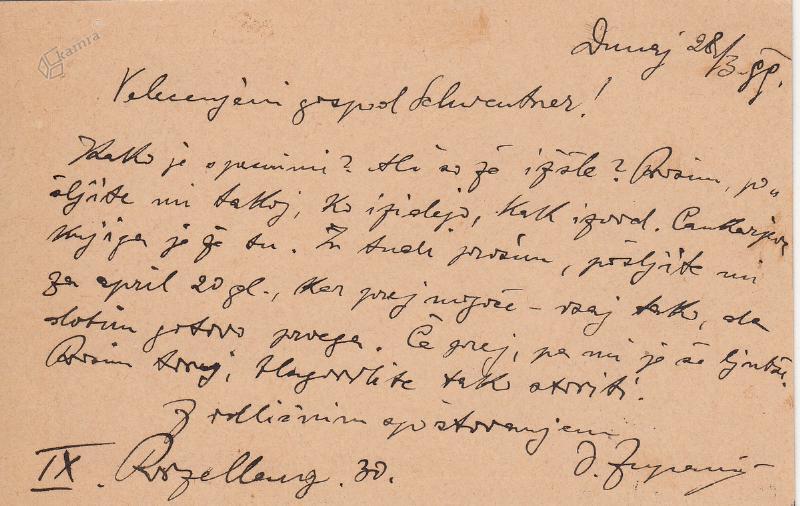 kamra
Dunaj 28/3 99.
Velecenjeni gospod Schwentner!
Kako je s pesmimi? Ali so že izšle? Prosim, po„
šljite mi takoj, ko izidejo, kak izvod. Cankarjeva
knjiga je že tu. In tudi prosim, pošljite mi
za april 20 gl., ker prej mogoče – vsaj tako, da
dobim gotovo prvega. Če prej, pa mi je še ljubše.
Prosim torej, blagovolite tako storiti.
Z odličnim spoštovanjem
IX. Porzellang. 30.
J. Župančič